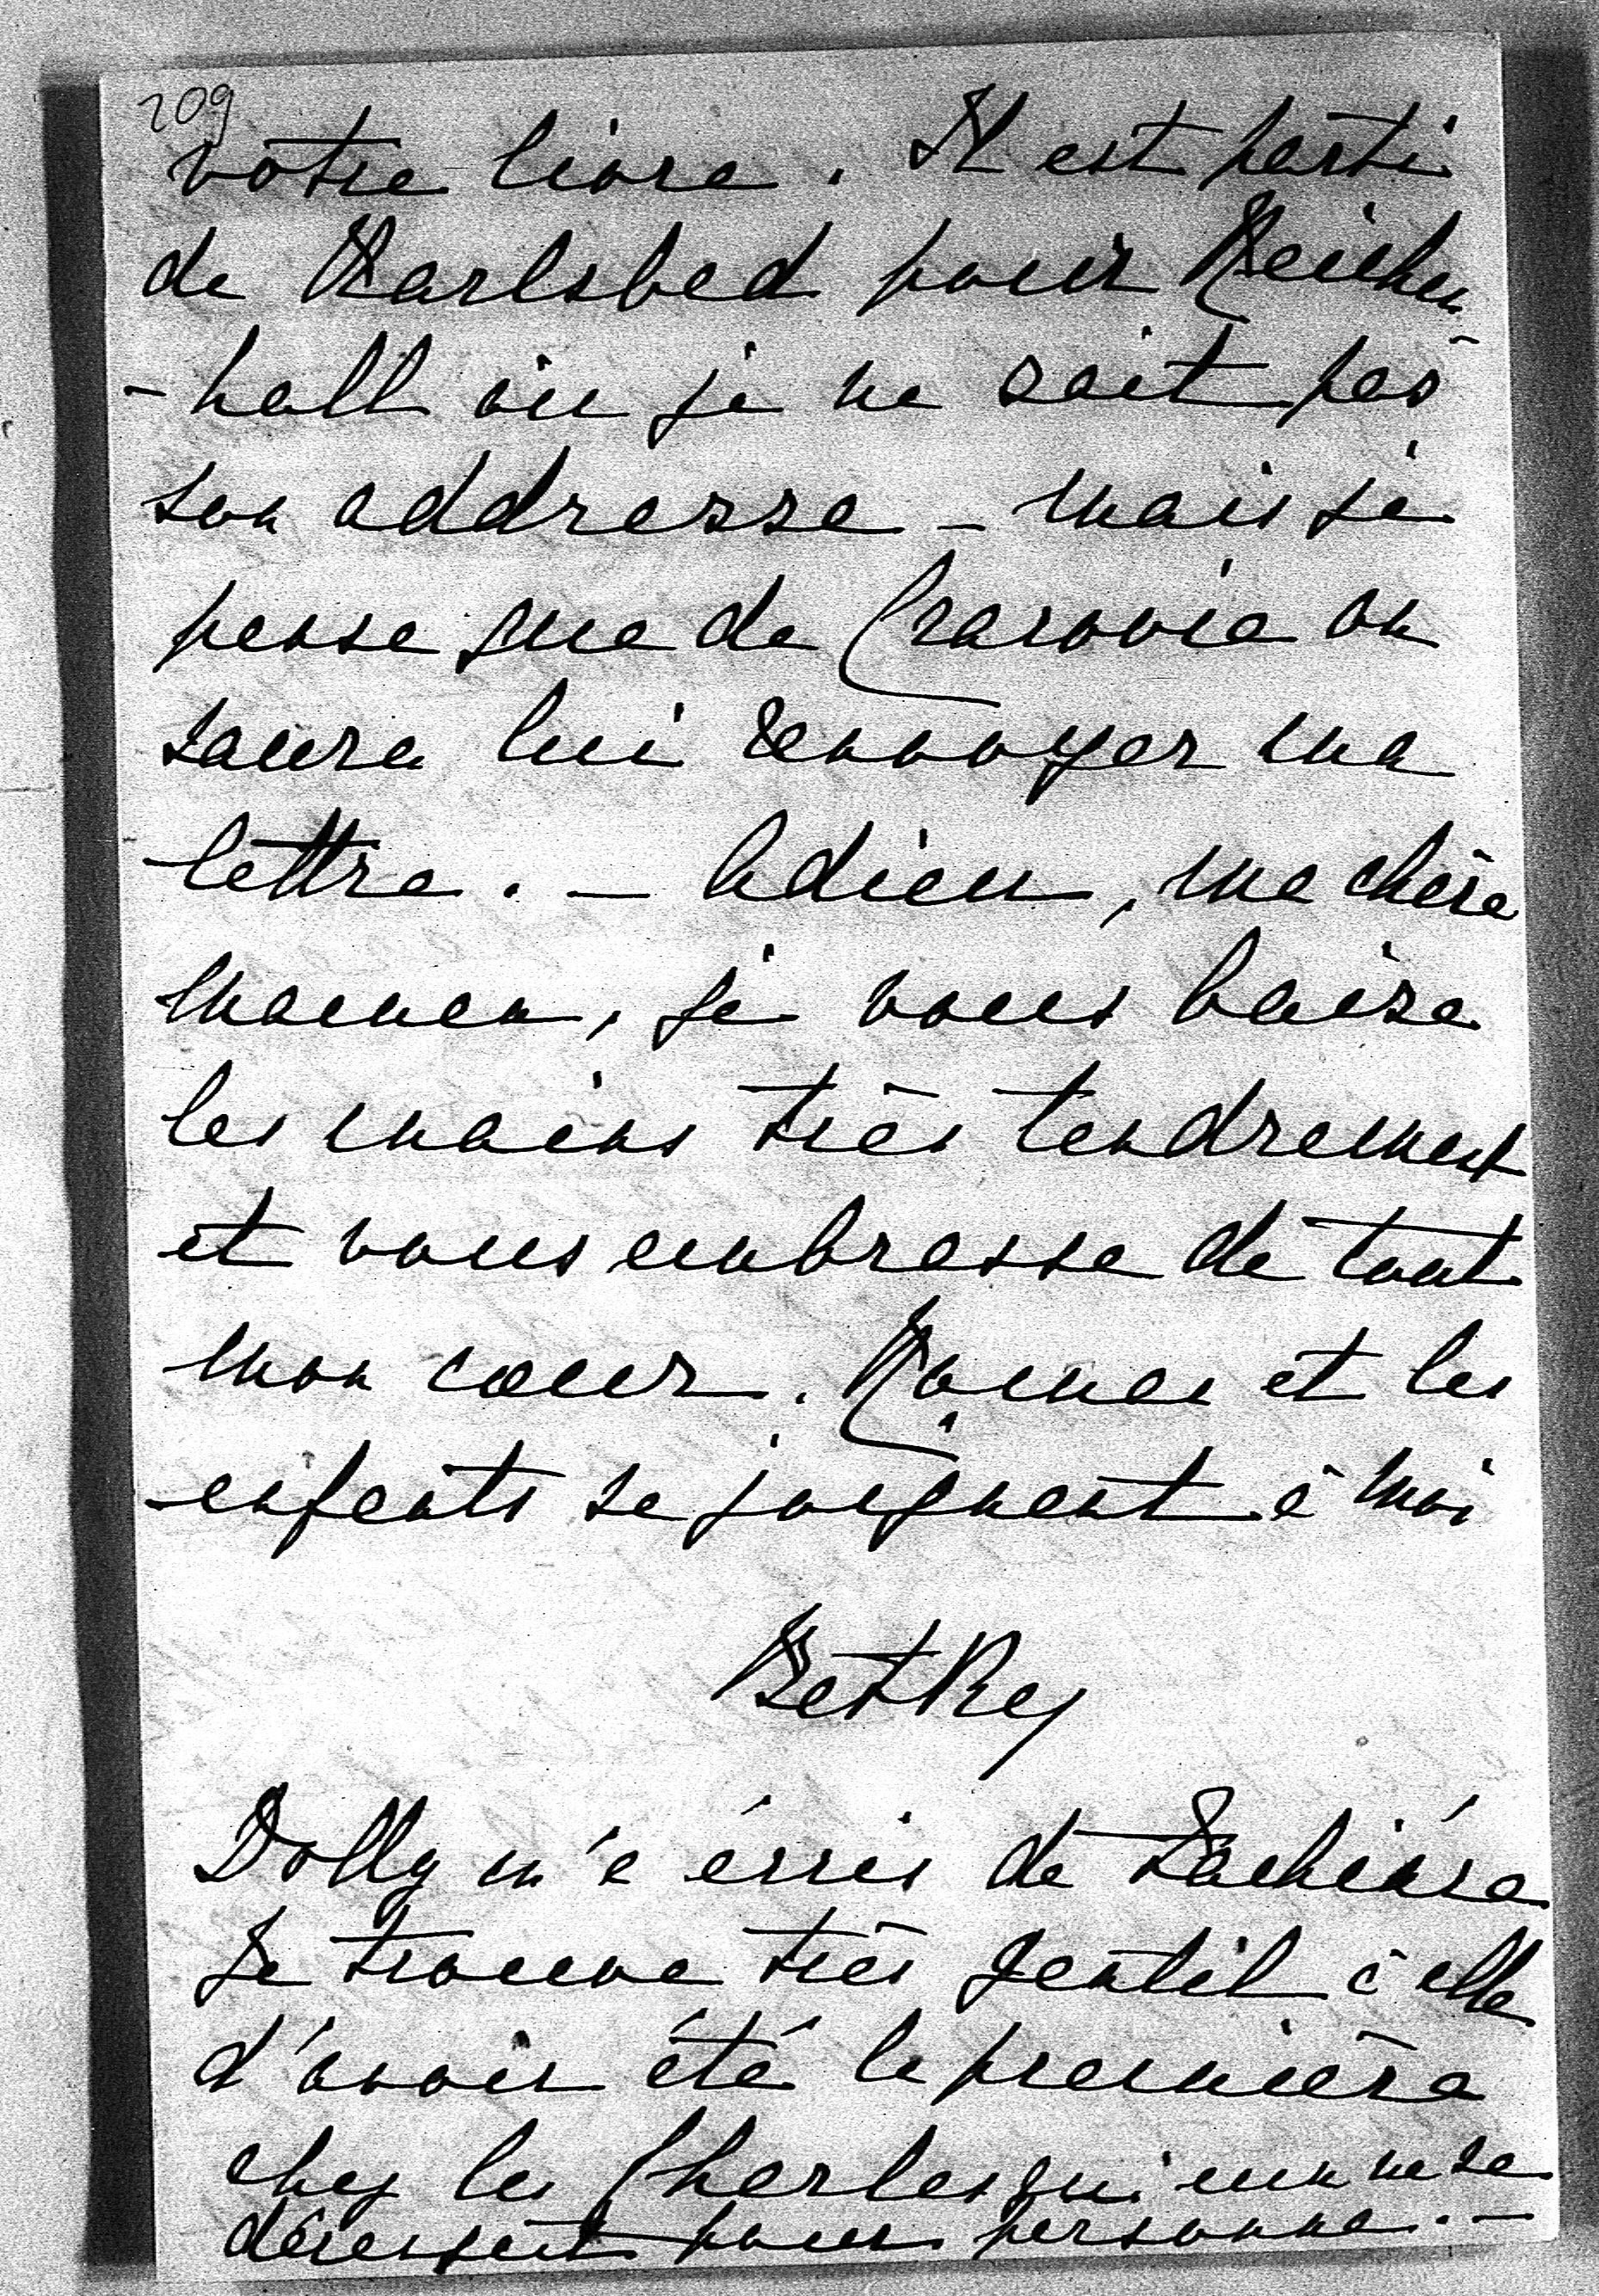 209
votre livre. Il est parti
de Karlsbad pour Reichen
-hall où je ne sait pas
son addresse - mais je
pense que de Cracovie on
saura lui renvoyer ma
lettre. - Adieu, ma chère
maman, je vous baise
les mains très tendrement
et vous embrasse de tout
mon cœur. Roman et les
enfants se joignent à moi
Betky
Dolly m'a écris de
Je trouve très gentil à elle
d'avoir été la première
chez les Charles qui eux ne se
dérangent pour personne. -